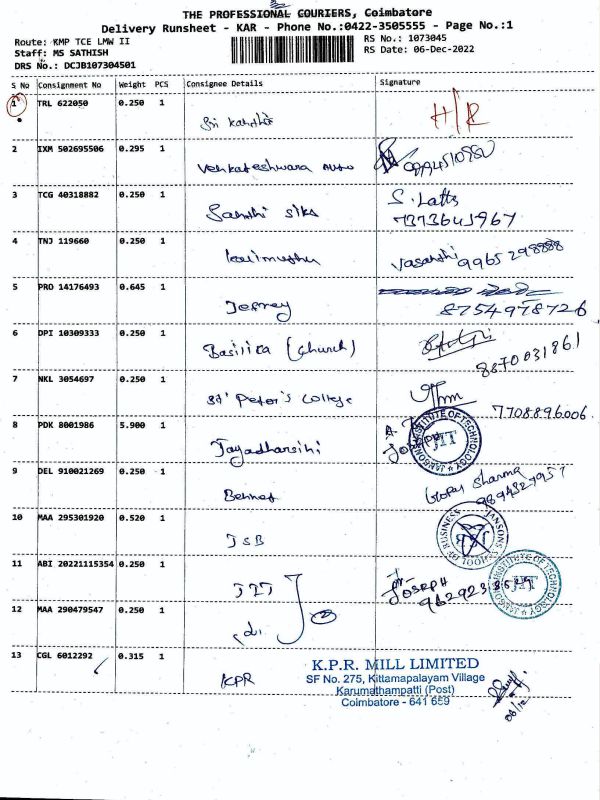 THE PROFESSIONAL COURIERS, Coimbatore
Delivery Runsheet - KAR - Phone No.:0422-3505555 - Page No.:1
Route: KMP TCE LMW II RS No.: 1073045
Staff: MS SATHISH RS Date: 06-Dec-2022
DRS No.: DCJB107304501
S No Consignment No Weight PCS Consignee Details Signature
1 TRL 622050 0.250 1 H/R
Sri
2 IXM 502695506 0.295 1
Venkateshwara Auto
3 TCG 40318882 0.250 1 S. Latts
Sakthi silks 7373643967
4 TNJ 119660 0.250 1
Karimuthu Vasanthi 9965298888
5 PRO 14176493 0.645 1
Jeffrey 8754978726
6 DPI 10309333 0.250 1
Basilica (church) 8870031861
7 NKL 3054697 0.250 1
St' Peter's College 7708896006
8 PDK 8001986 5.900 1
JANSONS INSTITUTE OF TECHNOLOGY JIT
9 DEL 910021269 0.250 1
Sharma
10 MAA 295301920 0.520 1
JSB JANSONS SCHOOL OF BUSINESS JSB
11 ABI 20221115354 0.250 1
JIT JOSEPH JANSONS INSTITUTE OF TECHNOLOGY JIT
12 MAA 290479547 0.250 1
13 CGL 6012292 0.315 1
KPR
K.P.R. MILL LIMITED
SF No. 275, Kittamapalayam Village
Karumathampatti (Post)
Coimbatore - 641 659